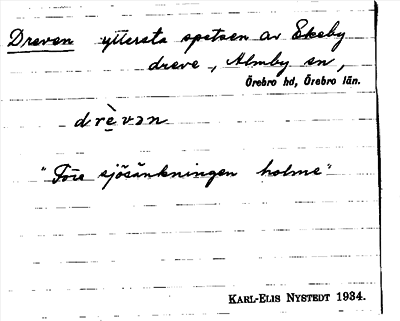 Dreven yttersta spetsen av Ekeby
dreve, Almby sn,
Örebro hd, Örebro län.
drèvən
"Före sjösänkningen holme"
KARL-ELIS NYSTEDT 1934.